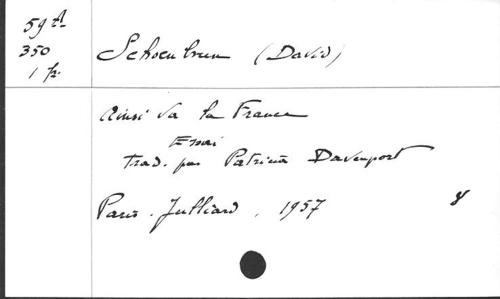 59 A
350
1 fr.
Schoenbrun (David)
Ainsi va la France
Essai
trad. par Patricia Davenport
Paris. Julliard, 1957
8